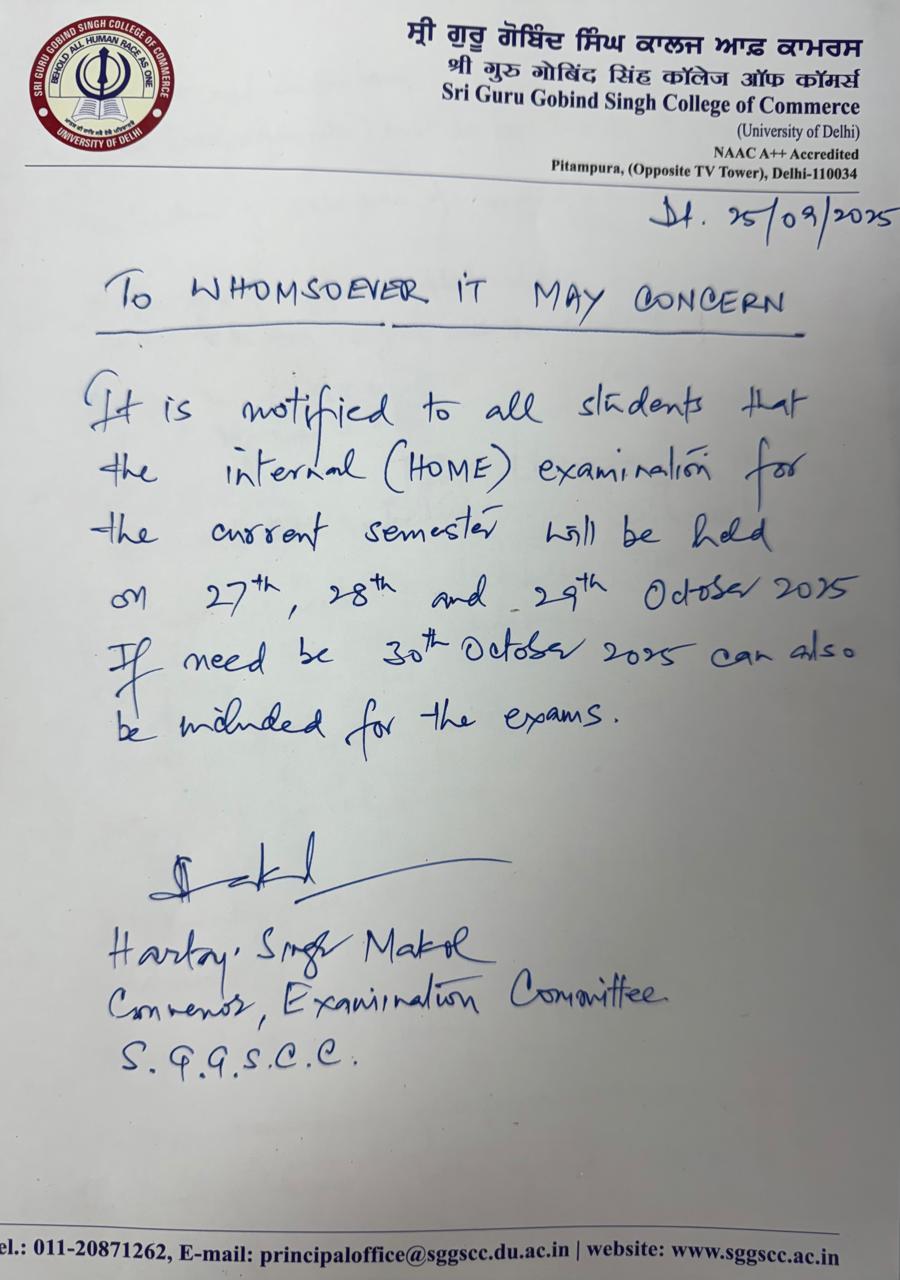 SRI GURU GOBIND SINGH COLLEGE OF COMMERCE
BEHOLD ALL HUMAN RACE AS ONE
UNIVERSITY OF DELHI
ਸ੍ਰੀ ਗੁਰੂ ਗੋਬਿੰਦ ਸਿੰਘ ਕਾਲਜ ਆਫ਼ ਕਾਮਰਸ
श्री गुरु गोबिंद सिंह कॉलेज ऑफ कॉमर्स
Sri Guru Gobind Singh College of Commerce
(University of Delhi)
NAAC A++ Accredited
Pitampura, (Opposite TV Tower), Delhi-110034
Dt. 25/09/2025
To WHOMSOEVER IT MAY CONCERN
It is notified to all students that
the internal (HOME) examination for
the current semester will be held
on 27th, 28th and 29th October 2025
If need be 30th October 2025 can also
be included for the exams.
Singh Makol
Convenor, Examination Committee
S.G.G.S.C.C.
el.: 011-20871262, E-mail: principaloffice@sggscc.du.ac.in | website: www.sggscc.ac.in